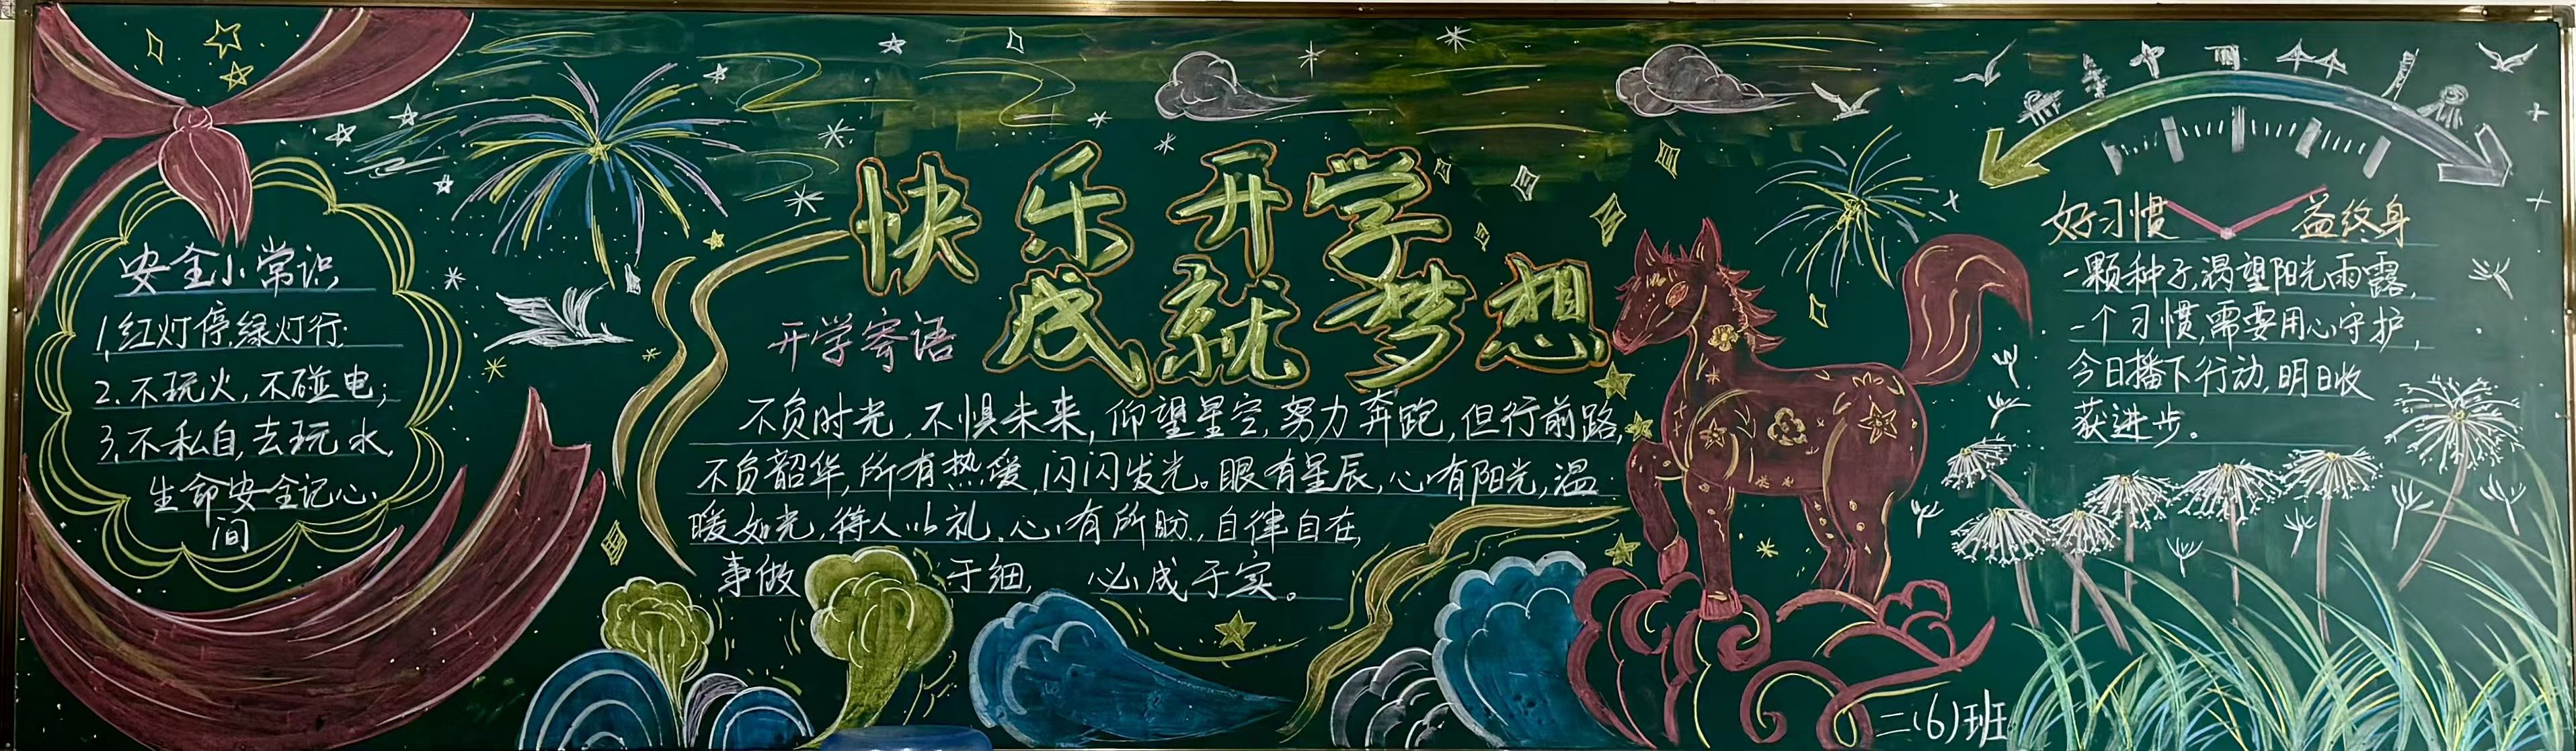 安全小常识
1.红灯停,绿灯行;
2.不玩火,不碰电;
3.不私自,去玩水,
生命安全记心
间
快乐开学
成就梦想
开学寄语
不负时光,不惧未来,仰望星空,努力奔跑,但行前路,
不负韶华,所有热爱,闪闪发光。眼有星辰,心有阳光,温
暖如光,待人以礼,心有所盼,自律自在,
事做于细,必成于实。
好习惯 益终身
一颗种子,渴望阳光雨露,
一个习惯,需要用心守护,
今日播下行动,明日收
获进步。
二(6)班